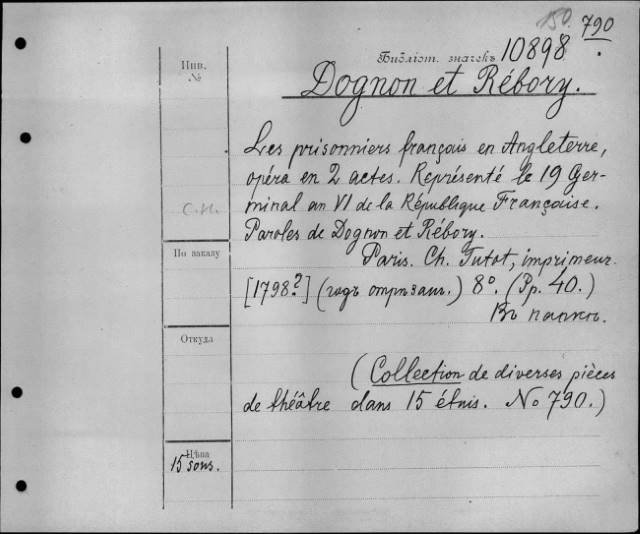 150. 790
Библіот. значекъ 10898.
Инв. №
Dognon et Rébory.
Les prisonniers français en Angleterre,
opéra en 2 actes. Représenté le 19 Ger-
minal an VI de la République Française.
Paroles de Dognon et Rébory.
С.Н.
По заказу
Paris. Ch. Tutot, imprimeur.
[1798?] (годъ отрѣзанъ.) 8°. (Pp. 40.)
Въ папкѣ.
Откуда
(Collection de diverses pièces
de théâtre dans 15 étuis. No 790.)
Цѣна
15 sous.